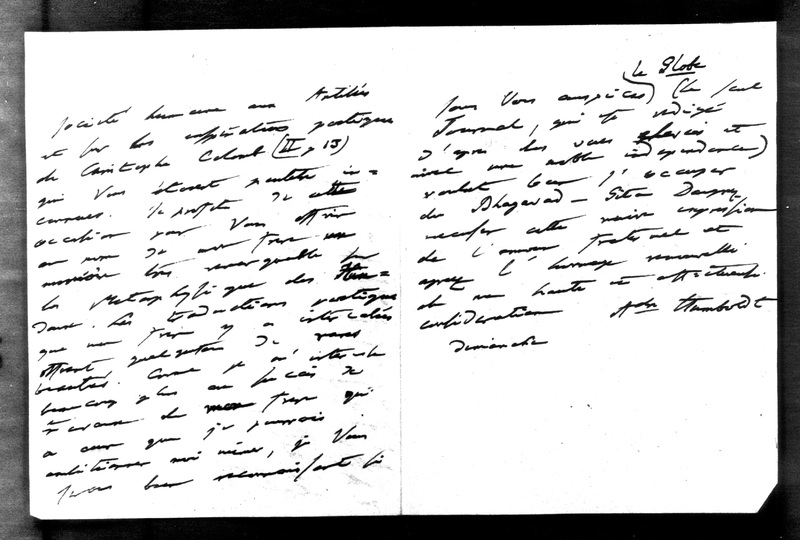 société humaine aux Antilles
et sur les aspirations poétiques
de Christophe Colomb (II p 13)
qui Vous étoient peutêtre in=
connues. Je profite de cette
occasion pour Vous offrir
au nom de mon frere un
mémoire très remarquable sur
la Metaphysique des Hin=
dous. Les traductions poetiques
que mon frere y a intercalées
offrent quelquefois de rares
beautés. Comme je m'interesse
beaucoup plus au succès de
travaux de mon frere qui
a ceux que je pourrois
ambitionner moi même, je Vous
serois bien reconnoissant si
sous Vos auspices) (le seul
le Globe
Journal, qui est redigé
d'apres des vues elevées et
avec une noble independance)
vouloit bien s'occuper
du Bhagavad-Gita. Daignez
excuser cette naive expression
de l'amour fraternel et
agreez l'hommage renouvellé
de ma haute et affectueuse
consideration
Adre Humboldt
Dimanche